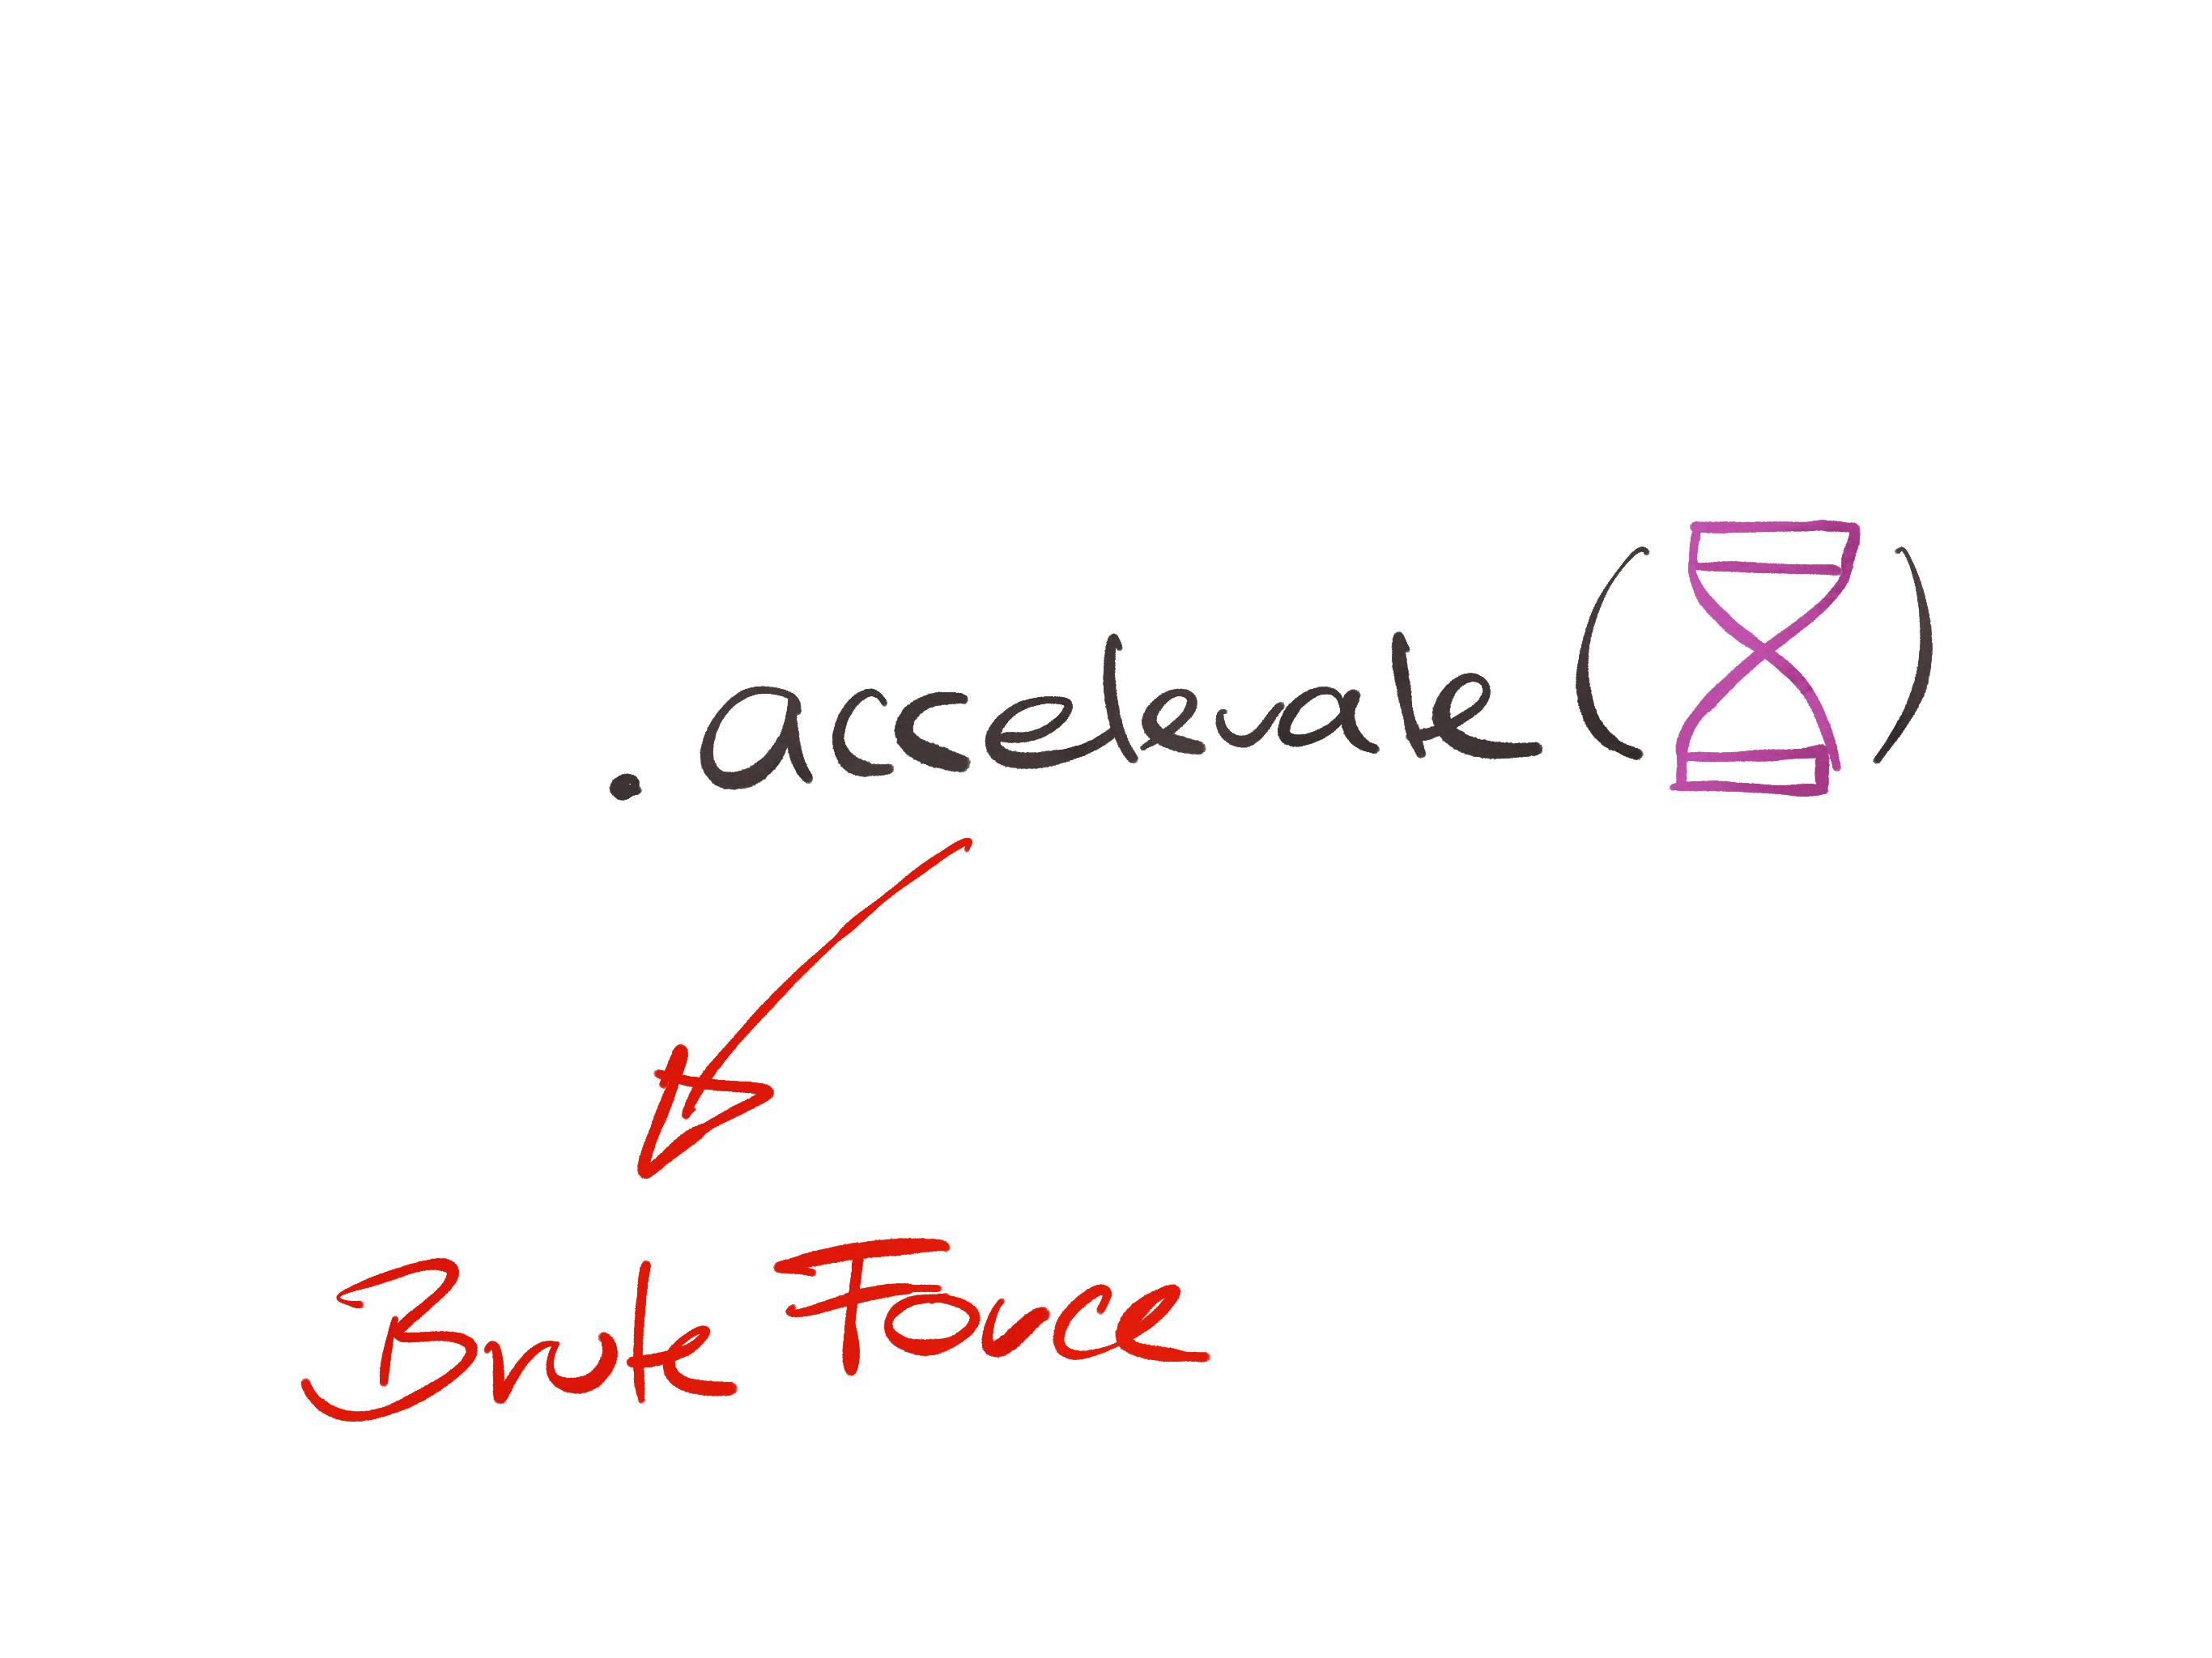 .accelerate( )
Brute Force